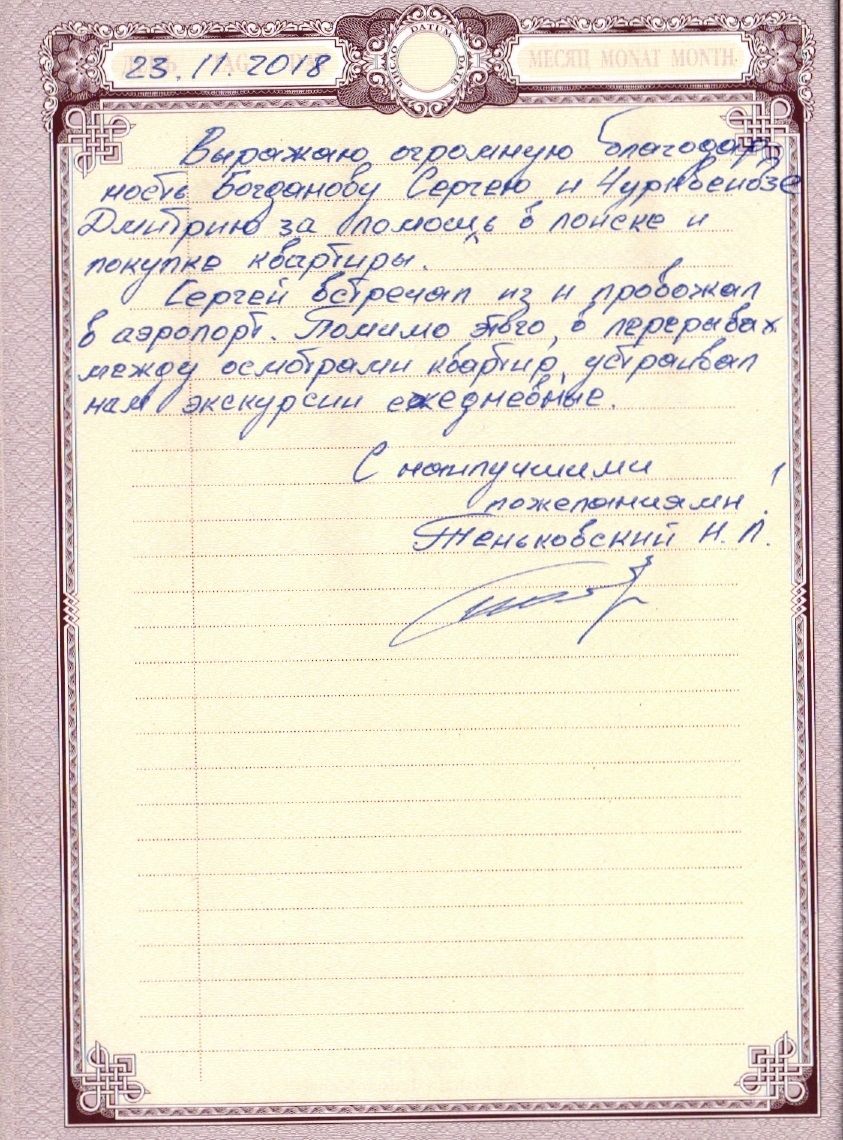 23.11.2018
ЧИСЛО DATUM DATE
МЕСЯЦ MONAT MONTH
Выражаю огромную благодар
ность Богданову Сергею и
Дмитрию за помощь в поиске и
покупке квартиры.
Сергей встречал из и провожал
в аэропорт. Помимо этого, в перерывах
между осмотрами квартир, устраивал
нам экскурсии ежедневные.
С наилучшими
пожеланиями!
Теньковский Н. П.